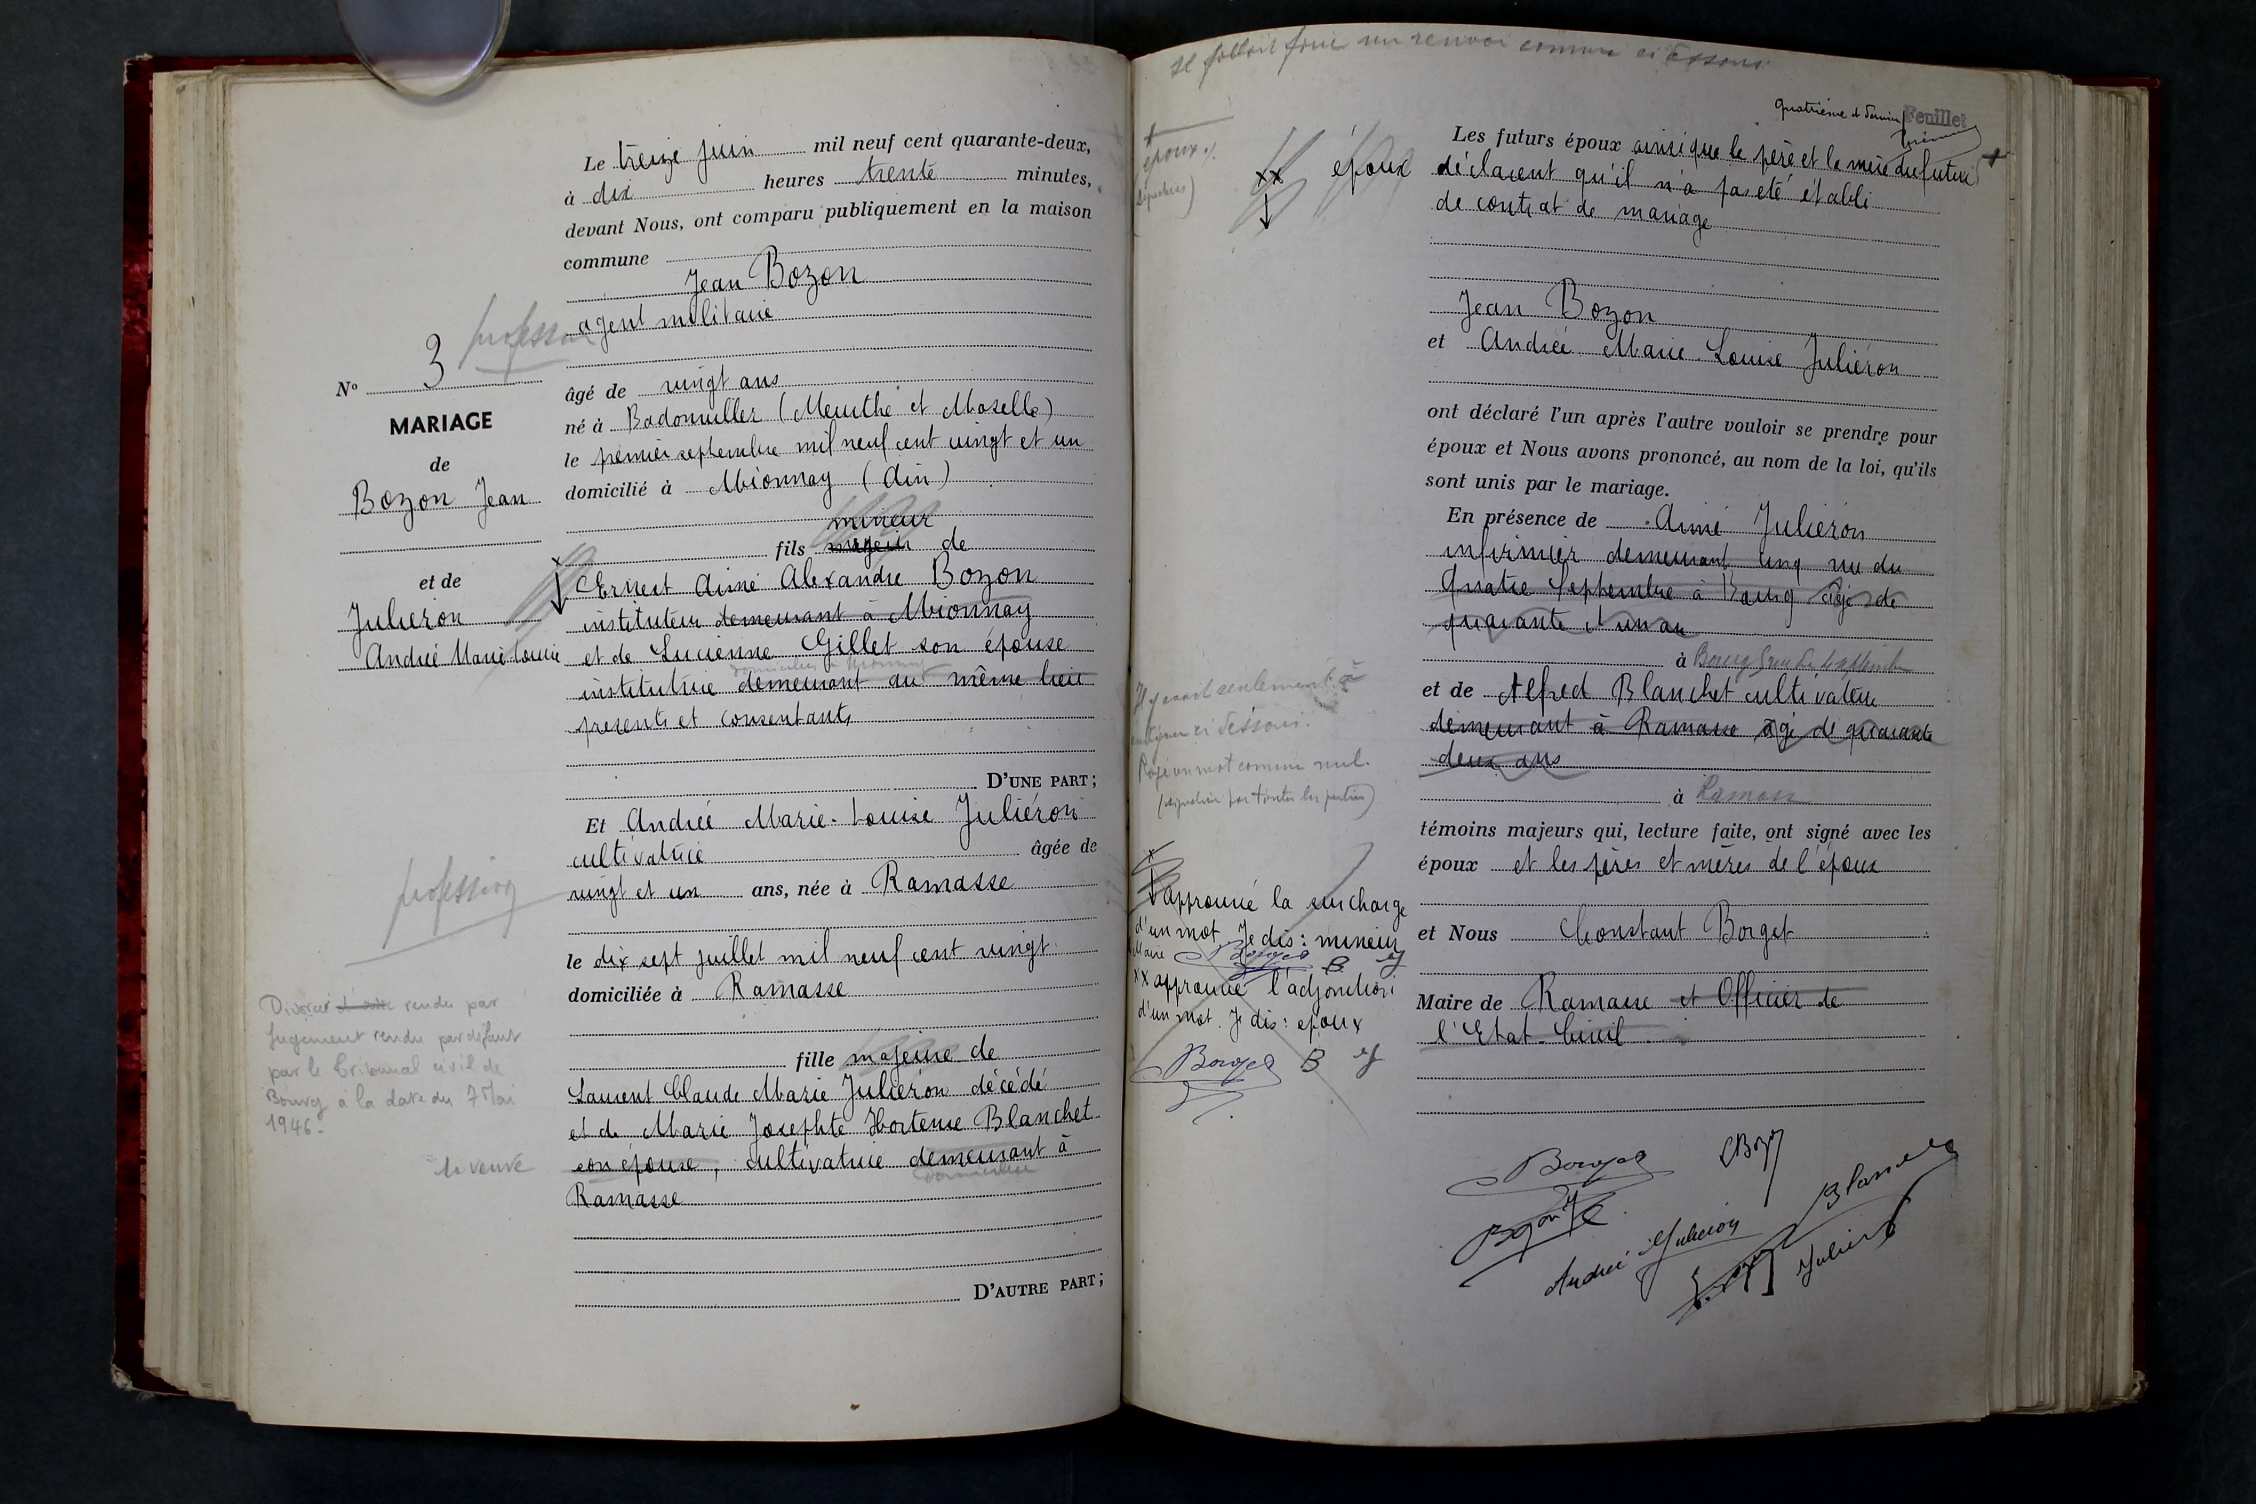 N° 3
MARIAGE
de
Bozon Jean
et de
Julieron
Andrée Marie Louise
professeur
profession
Divorce rendu par
Jugement rendu par défaut
par le Tribunal civil de
Bourg à la date du 7 Mai
1946.
sa veuve
Le treize juin mil neuf cent quarante-deux,
à dix heures trente minutes,
devant Nous, ont comparu publiquement en la maison
commune
Jean Bozon
agent militaire
âgé de vingt ans
né à Badonviller (Meurthe et Moselle)
le premier septembre mil neuf cent vingt et un
domicilié à Mionnay (Ain)
mineur
fils majeur de
Ernest Aimé Alexandre Bozon
instituteur demeurant à Mionnay
et de Lucienne Gillet son épouse
domiciliés à Mionnay
institutrice demeurant au même lieu
présents et consentants
D'UNE PART;
Et Andrée Marie-Louise Juliéron
cultivatrice âgée de
vingt et un ans, née à Ramasse
le dix sept juillet mil neuf cent vingt
domiciliée à Ramasse
fille majeure de
Laurent Claude Marie Juliéron décédé
et de Marie Josephte Hortense Blanchet
son épouse, cultivatrice demeurant à
domiciliée
Ramasse
D'AUTRE PART;
Il fallait faire un renvoi comme ci dessous
Quatrième et dernier Feuillet
époux
(signatures)
xx époux
Les futurs époux ainsi que le père et la mère du futur
déclarent qu'il n'a pas été établi
de contrat de mariage
Jean Bozon
et Andrée Marie-Louise Juliéron
ont déclaré l'un après l'autre vouloir se prendre pour
époux et Nous avons prononcé, au nom de la loi, qu'ils
sont unis par le mariage.
En présence de Aimé Juliéron
infirmier demeurant cinq rue du
Quatre Septembre à Bourg âgé de
quarante et un an
à Bourg 5 rue du 4 septembre
et de Alfred Blanchet cultivateur
demeurant à Ramasse âgé de quarante
deux ans
à Ramasse
témoins majeurs qui, lecture faite, ont signé avec les
époux et les pères et mères de l'époux
et Nous Constant Borget
Maire de Ramasse et Officier de
l'Etat-Civil
Il y avait seulement à
indiquer ci dessous:
Rayé un mot comme nul.
(signature par toutes les parties)
x approuvé la surcharge
d'un mot. Je dis: mineur
Maire Borget B
xx approuvé l'adjonction
d'un mot. Je dis: époux
Borget B
Borget
Andrée Julieron
Blanchet